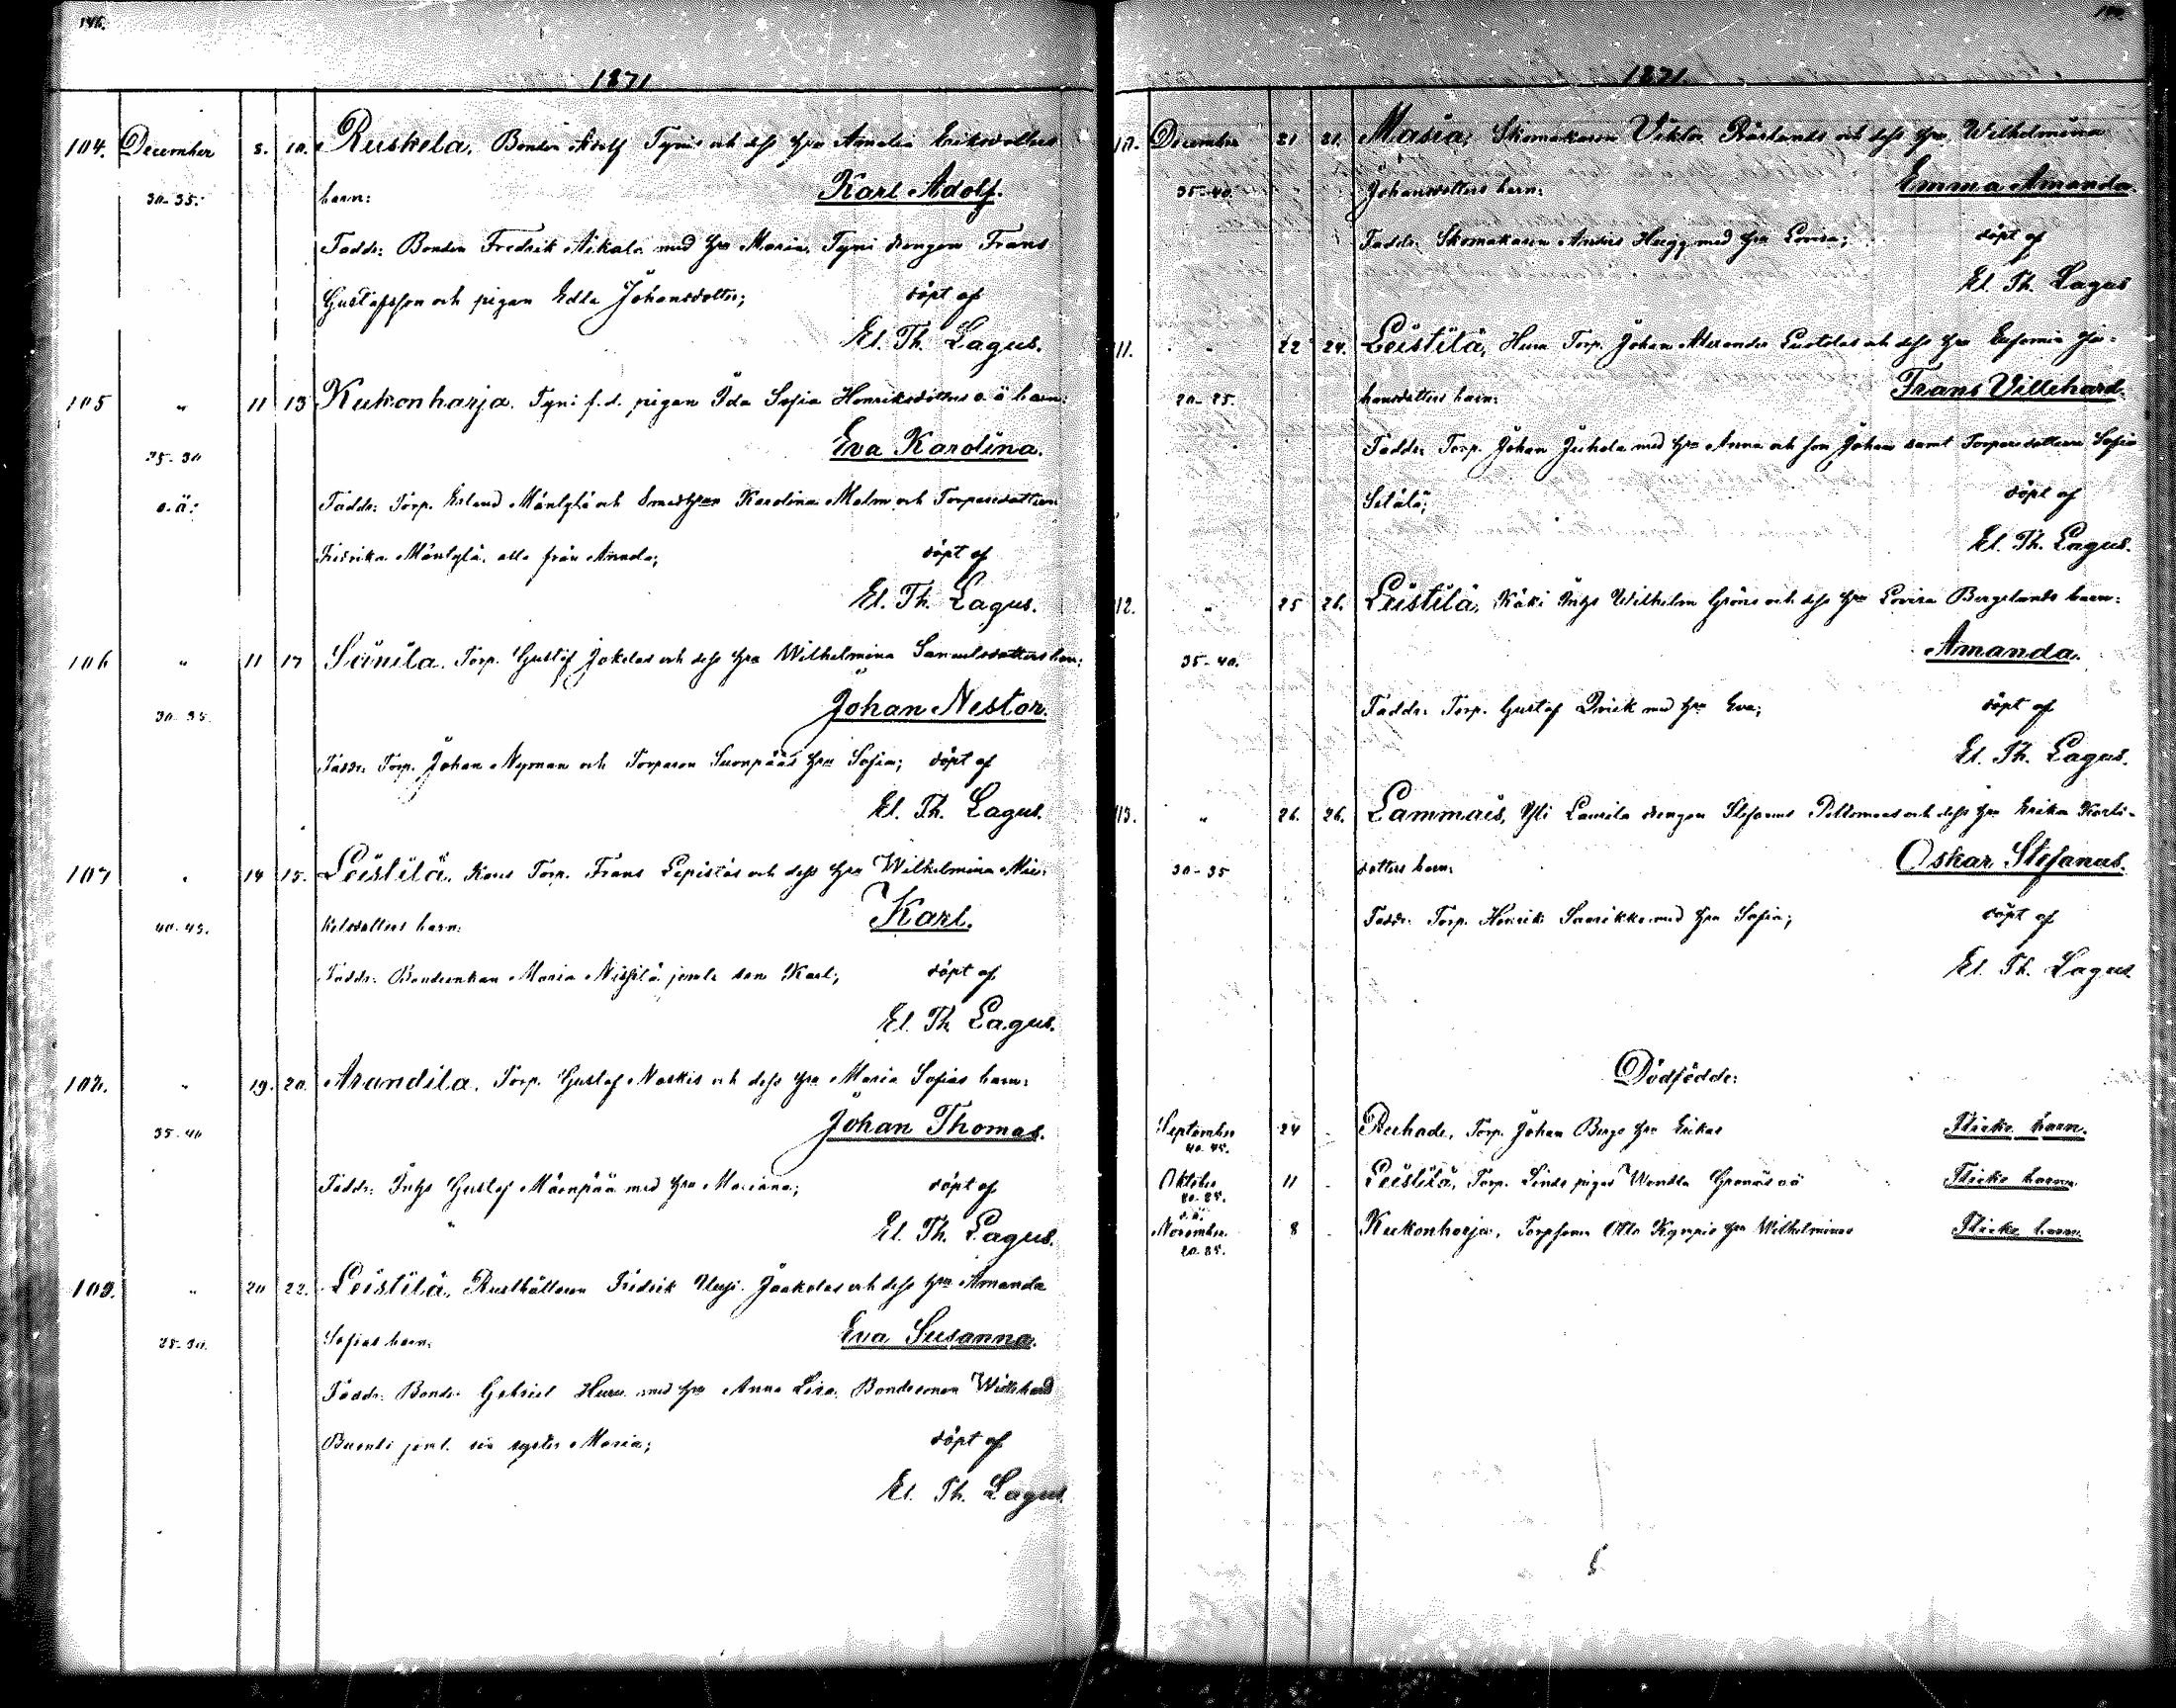 146.
1871
104. December 8. 10. Ruskela. Bonden Adolf Tynis och dess hu Amalia Eriksdotters
30-35. barn: Karl Adolf.
Faddr: Bonden Fredrik Nikala med hu Maria, Tyni drengen Frans
Gustafsson och pigan Edla Johansdotter; döpt af
El. Th. Lagus.
105 „ 11 13 Kukonharja. Tyni f.d. pigan Ida Sofia Henriksdotters o.ä barn:
25-30 Eva Karolina.
o.ä: Faddr: Torp. Erland Mäntylä och Karolina Malm och Torparedottren
Fredrika Mäntylä, alla från Annola; döpt af
El. Th. Lagus.
106 „ 11 17 Torp. Gustaf Jokelas och dess hu Wilhelmina Samuelsdotters barn:
30-35. Johan Nestor.
Faddr: Torp. Johan Nyman och Torparen Suonpääs hu Sofia; döpt af
El. Th. Lagus.
107 „ 14 15. Leistilä. Torp. Frans Lepistös och dess hu Wilhelmina Mic-
40-45. kelsdotters barn: Karl.
Faddr: Bondeenkan Maria Nissilä jemte son Karl; döpt af
El. Th. Lagus.
108. „ 19. 20. Arandila. Torp. Gustaf och dess hu Maria Sofias barn:
35-40 Johan Thomas.
Faddr: Inhs Gustaf Mäenpää med hu Mariana; döpt af
El. Th. Lagus.
109. „ 20 22. Leistilä. Rusthållaren Fredrik Uusi Jaakolas och dess hu Amanda
25-30. Sofias barn: Eva Susanna.
Faddr: Bond. Gabriel med hu Anna Lisa, Bondesonen
jeml. sin syster Maria; döpt af
El. Th. Lagus
1871.
December 21 21. Masia, Skomakaren Viktor och dess hu Wilhelmina
35-40. Johansdotters barn: Emma Amanda.
Faddr: Skomakaren Anders Hägg med hu Lovisa; döpt af
El. Th. Lagus
11. „ 22 24. Leistilä, Torp. Johan Alexander och dess hu Eufemia Jo-
20-25. hansdotters barn: Frans Villehard.
Faddr: Torp. Johan Juhola med hu Anna och son Johan samt Torparedottren Sofia
Setälä; döpt af
El. Th. Lagus.
12. „ 25 26. Leistilä, Käki Inhs Wilhelm Gröns och dess hu Lovisa Berglunds barn:
35-40. Amanda.
Faddr: Torp. Gustaf Qvick med hu Eva; döpt af
El. Th. Lagus.
13. „ 26. 26. Lammais, Yli Laurila drengen Stefanus och dess hu Erika Karls-
30-35 dotters barn: Oskar Stefanus.
Faddr: Torp. Henrik Saarikko med hu Sofia; döpt af
El. Th. Lagus
Dödfödde:
September 24 Torp. Johan Bergs hu Erikas Flicke barn.
40-45.
Oktober 11 Leistilä, Torp. Linds pigas Wendla Grönroos oä Flicke barn.
20-25.
o.ä.
November 8 Kukonharja, Otto hu Wilhelminas Flicke barn.
20-25.